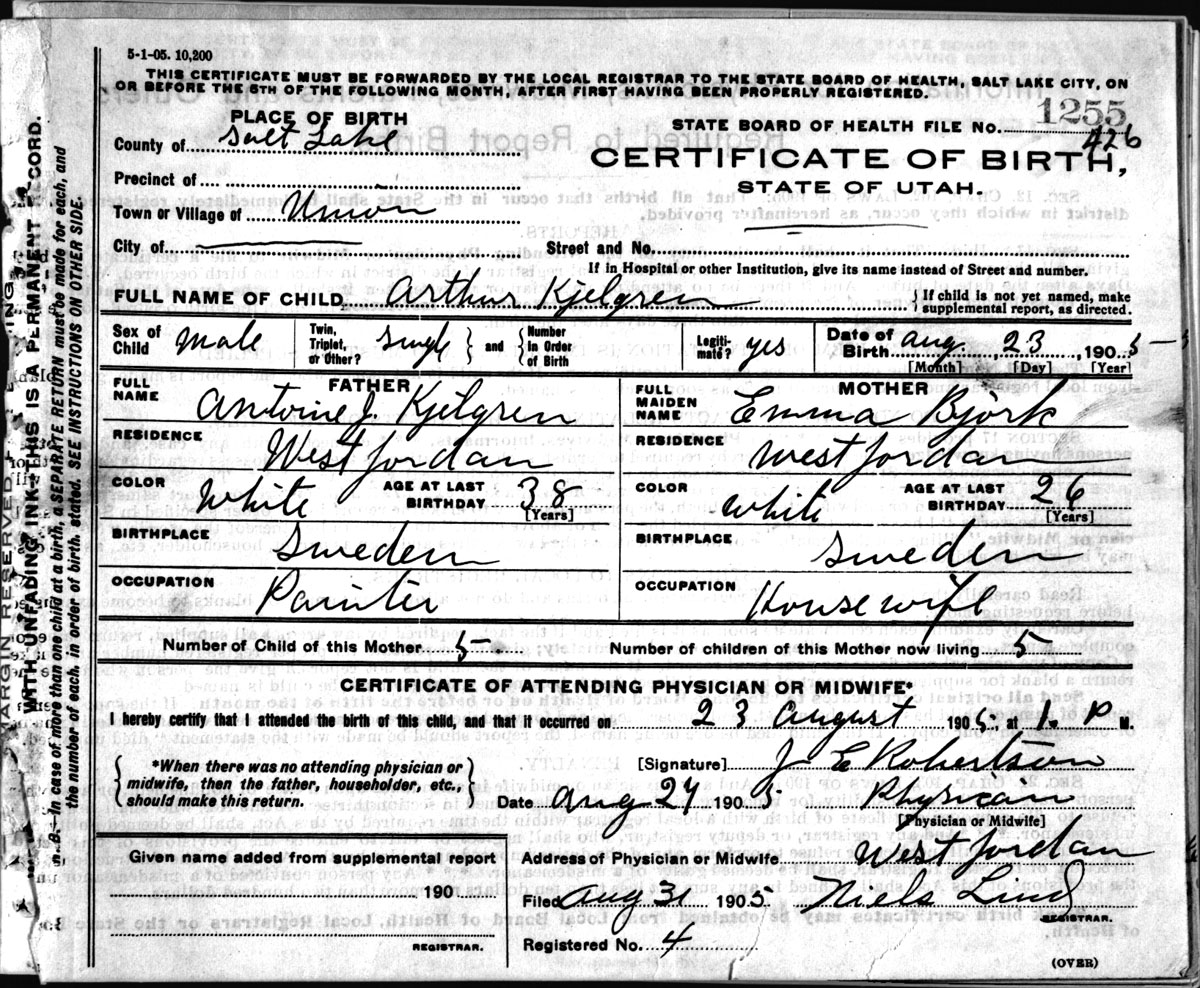 5-1-05. 10,200
THIS CERTIFICATE MUST BE FORWARDED BY THE LOCAL REGISTRAR TO THE STATE BOARD OF HEALTH, SALT LAKE CITY, ON
OR BEFORE THE 5TH OF THE FOLLOWING MONTH, AFTER FIRST HAVING BEEN PROPERLY REGISTERED.
PLACE OF BIRTH
County of Salt Lake
Precinct of
Town or Village of Union
City of
STATE BOARD OF HEALTH FILE No. 1255
426
CERTIFICATE OF BIRTH,
STATE OF UTAH.
Street and No.
If in Hospital or other Institution, give its name instead of Street and number.
FULL NAME OF CHILD Arthur Kjelgren
If child is not yet named, make
supplemental report, as directed.
Sex of Child Male
Twin, Triplet, or Other? Single and Number in Order of Birth
Legiti-mate? yes
Date of Birth Aug. 23, 1905
[Month] [Day] [Year]
FATHER
FULL NAME Antoine J. Kjelgren
RESIDENCE West Jordan
COLOR White AGE AT LAST BIRTHDAY 38
[Years]
BIRTHPLACE Sweden
OCCUPATION Painter
MOTHER
FULL MAIDEN NAME Emma Björk
RESIDENCE West Jordan
COLOR White AGE AT LAST BIRTHDAY 26
[Years]
BIRTHPLACE Sweden
OCCUPATION Housewife
Number of Child of this Mother 5 Number of children of this Mother now living 5
CERTIFICATE OF ATTENDING PHYSICIAN OR MIDWIFE*
I hereby certify that I attended the birth of this child, and that it occurred on 23 August 1905, at 1. P M.
*When there was no attending physician or
midwife, then the father, householder, etc.,
should make this return.
[Signature] J E Robertson
Date Aug 27 1905 Physican
[Physician or Midwife]
Given name added from supplemental report
190
REGISTRAR.
Address of Physician or Midwife West Jordan
Filed Aug 31 1905 Niels Lind
REGISTRAR.
Registered No. 4
(OVER)
MARGIN RESERVED
WITH UNFADING INK—THIS IS A PERMANENT RECORD.
N. B.—In case of more than one child at a birth, a SEPARATE RETURN must be made for each, and
the number of each, in order of birth, stated. SEE INSTRUCTIONS ON OTHER SIDE.